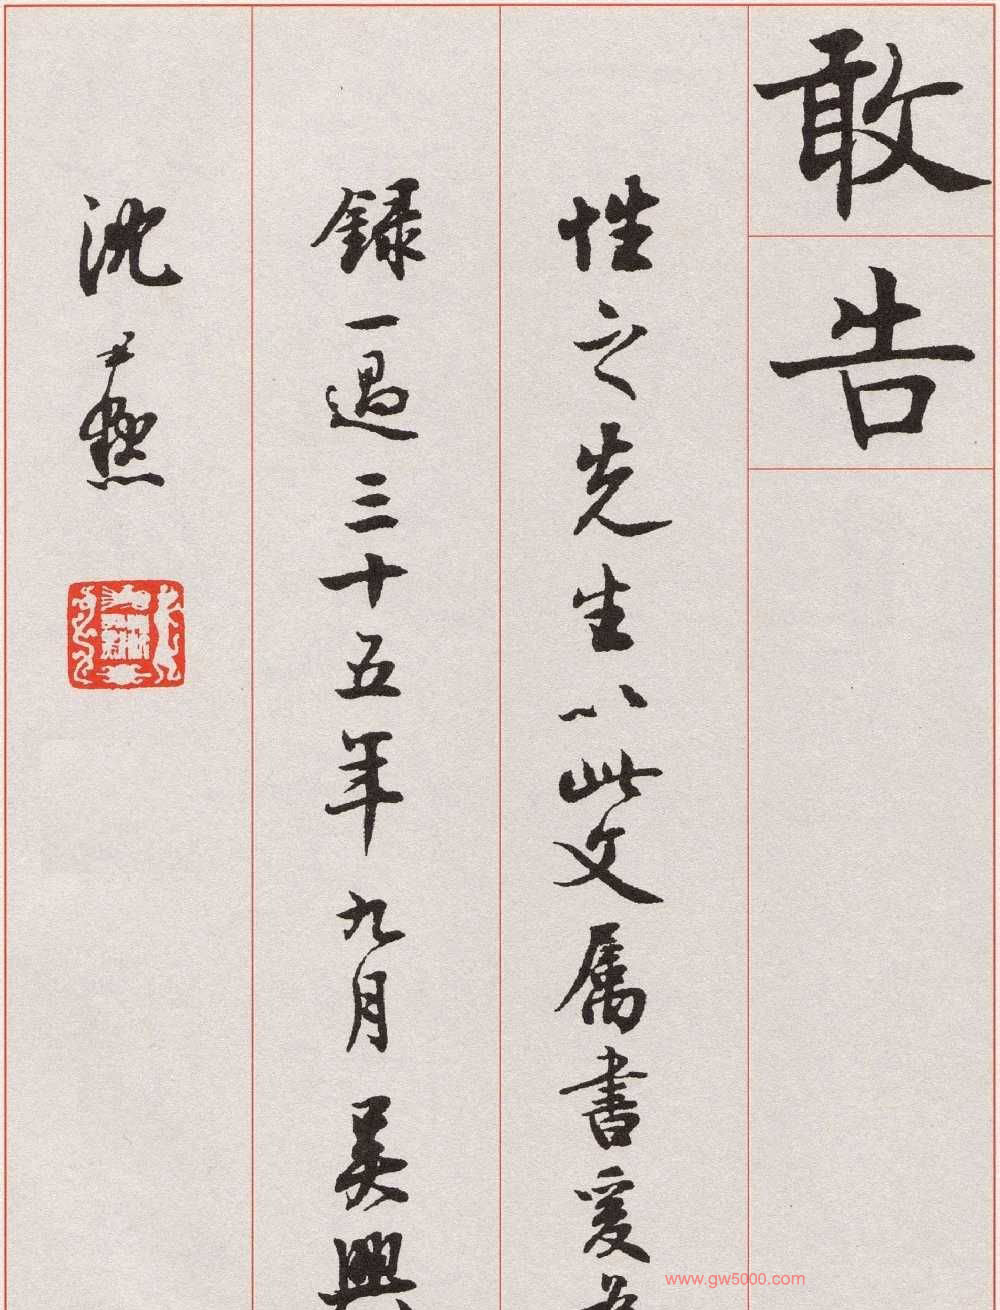 敢告
性之先生以此文属書爰為
録一過三十五年九月吴興
沈尹默
www.gw5000.com